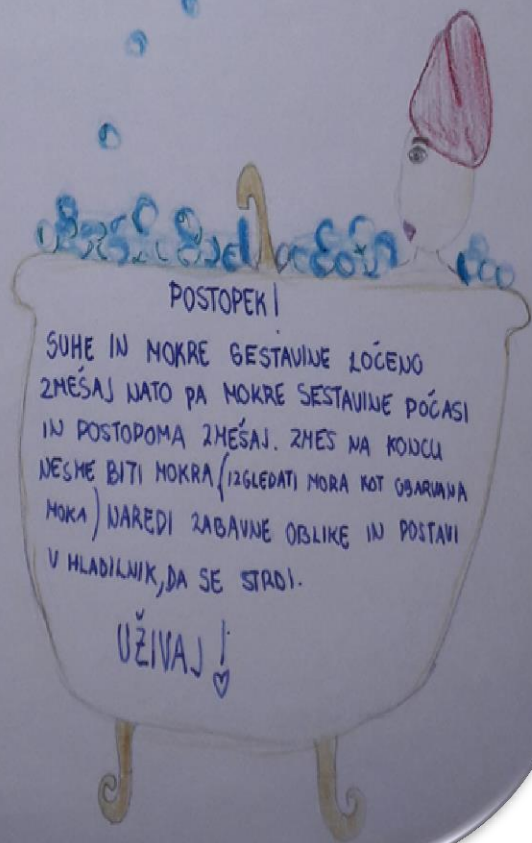 POSTOPEK!
SUHE IN MOKRE SESTAVINE LOČENO
ZMEŠAJ NATO PA MOKRE SESTAVINE POČASI
IN POSTOPOMA ZMEŠAJ. ZMES NA KONCU
NESME BITI MOKRA (IZGLEDATI MORA KOT OBARVANA
MOKA) NAREDI ZABAVNE OBLIKE IN POSTAVI
V HLADILNIK, DA SE STRDI.
UŽIVAJ!